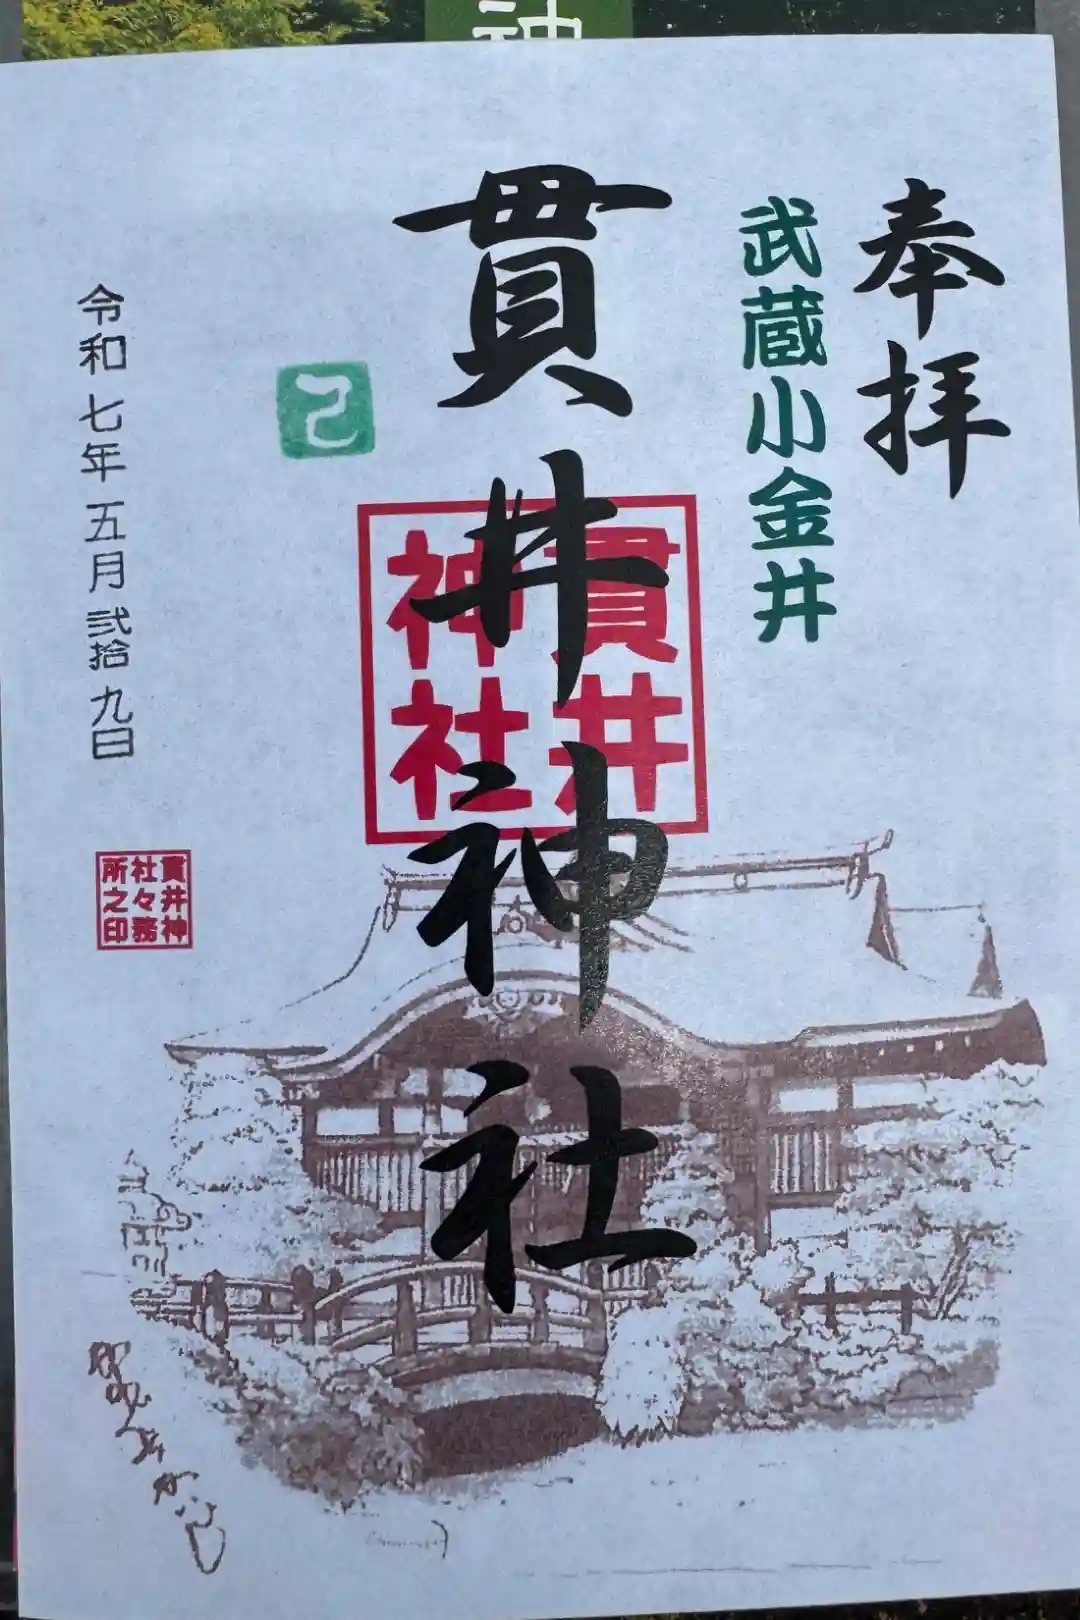 神
奉拝
武蔵小金井
貫井神社
貫井
神社
己
令和七年五月弐拾九日
貫井神
社々務
所之印